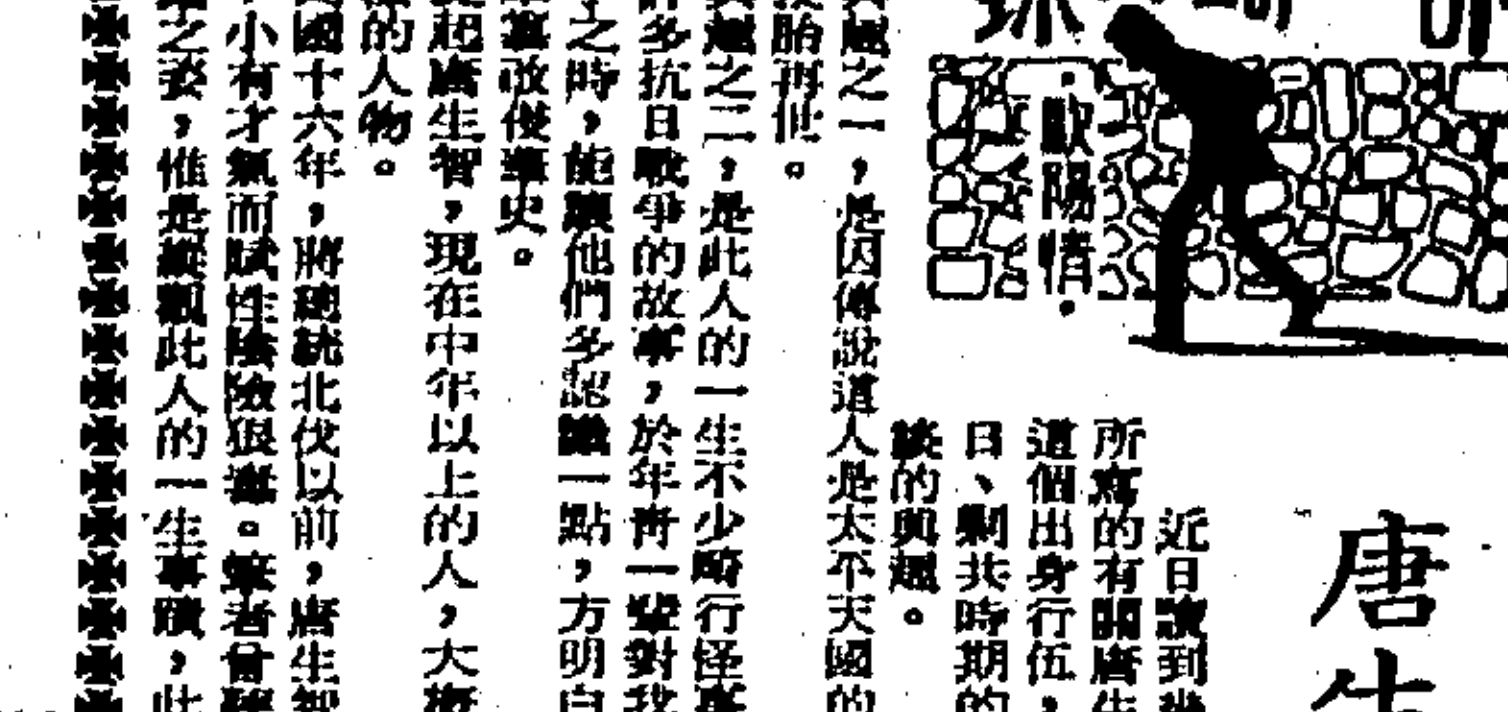 唐生
·歐陽情·
近日讀到幾
所寫的有關唐生
這個出身行伍，
日、剿共時期的
談的興趣。
興趣之一，是因傳說道人是太平天國的
投胎再世。
興趣之二，是此人的一生不少畸行怪事
許多抗日戰爭的故事，於年青一輩對我
之時，能讓他們多認識一點，方明白
筆史。
提起唐生智，現在中年以上的人，大概
的人物。
國十六年，將總統北伐以前，唐生智
小有才氣而賦性陰險狠毒。筆者曾聽
之姿，惟是縱觀此人的一生事蹟，此